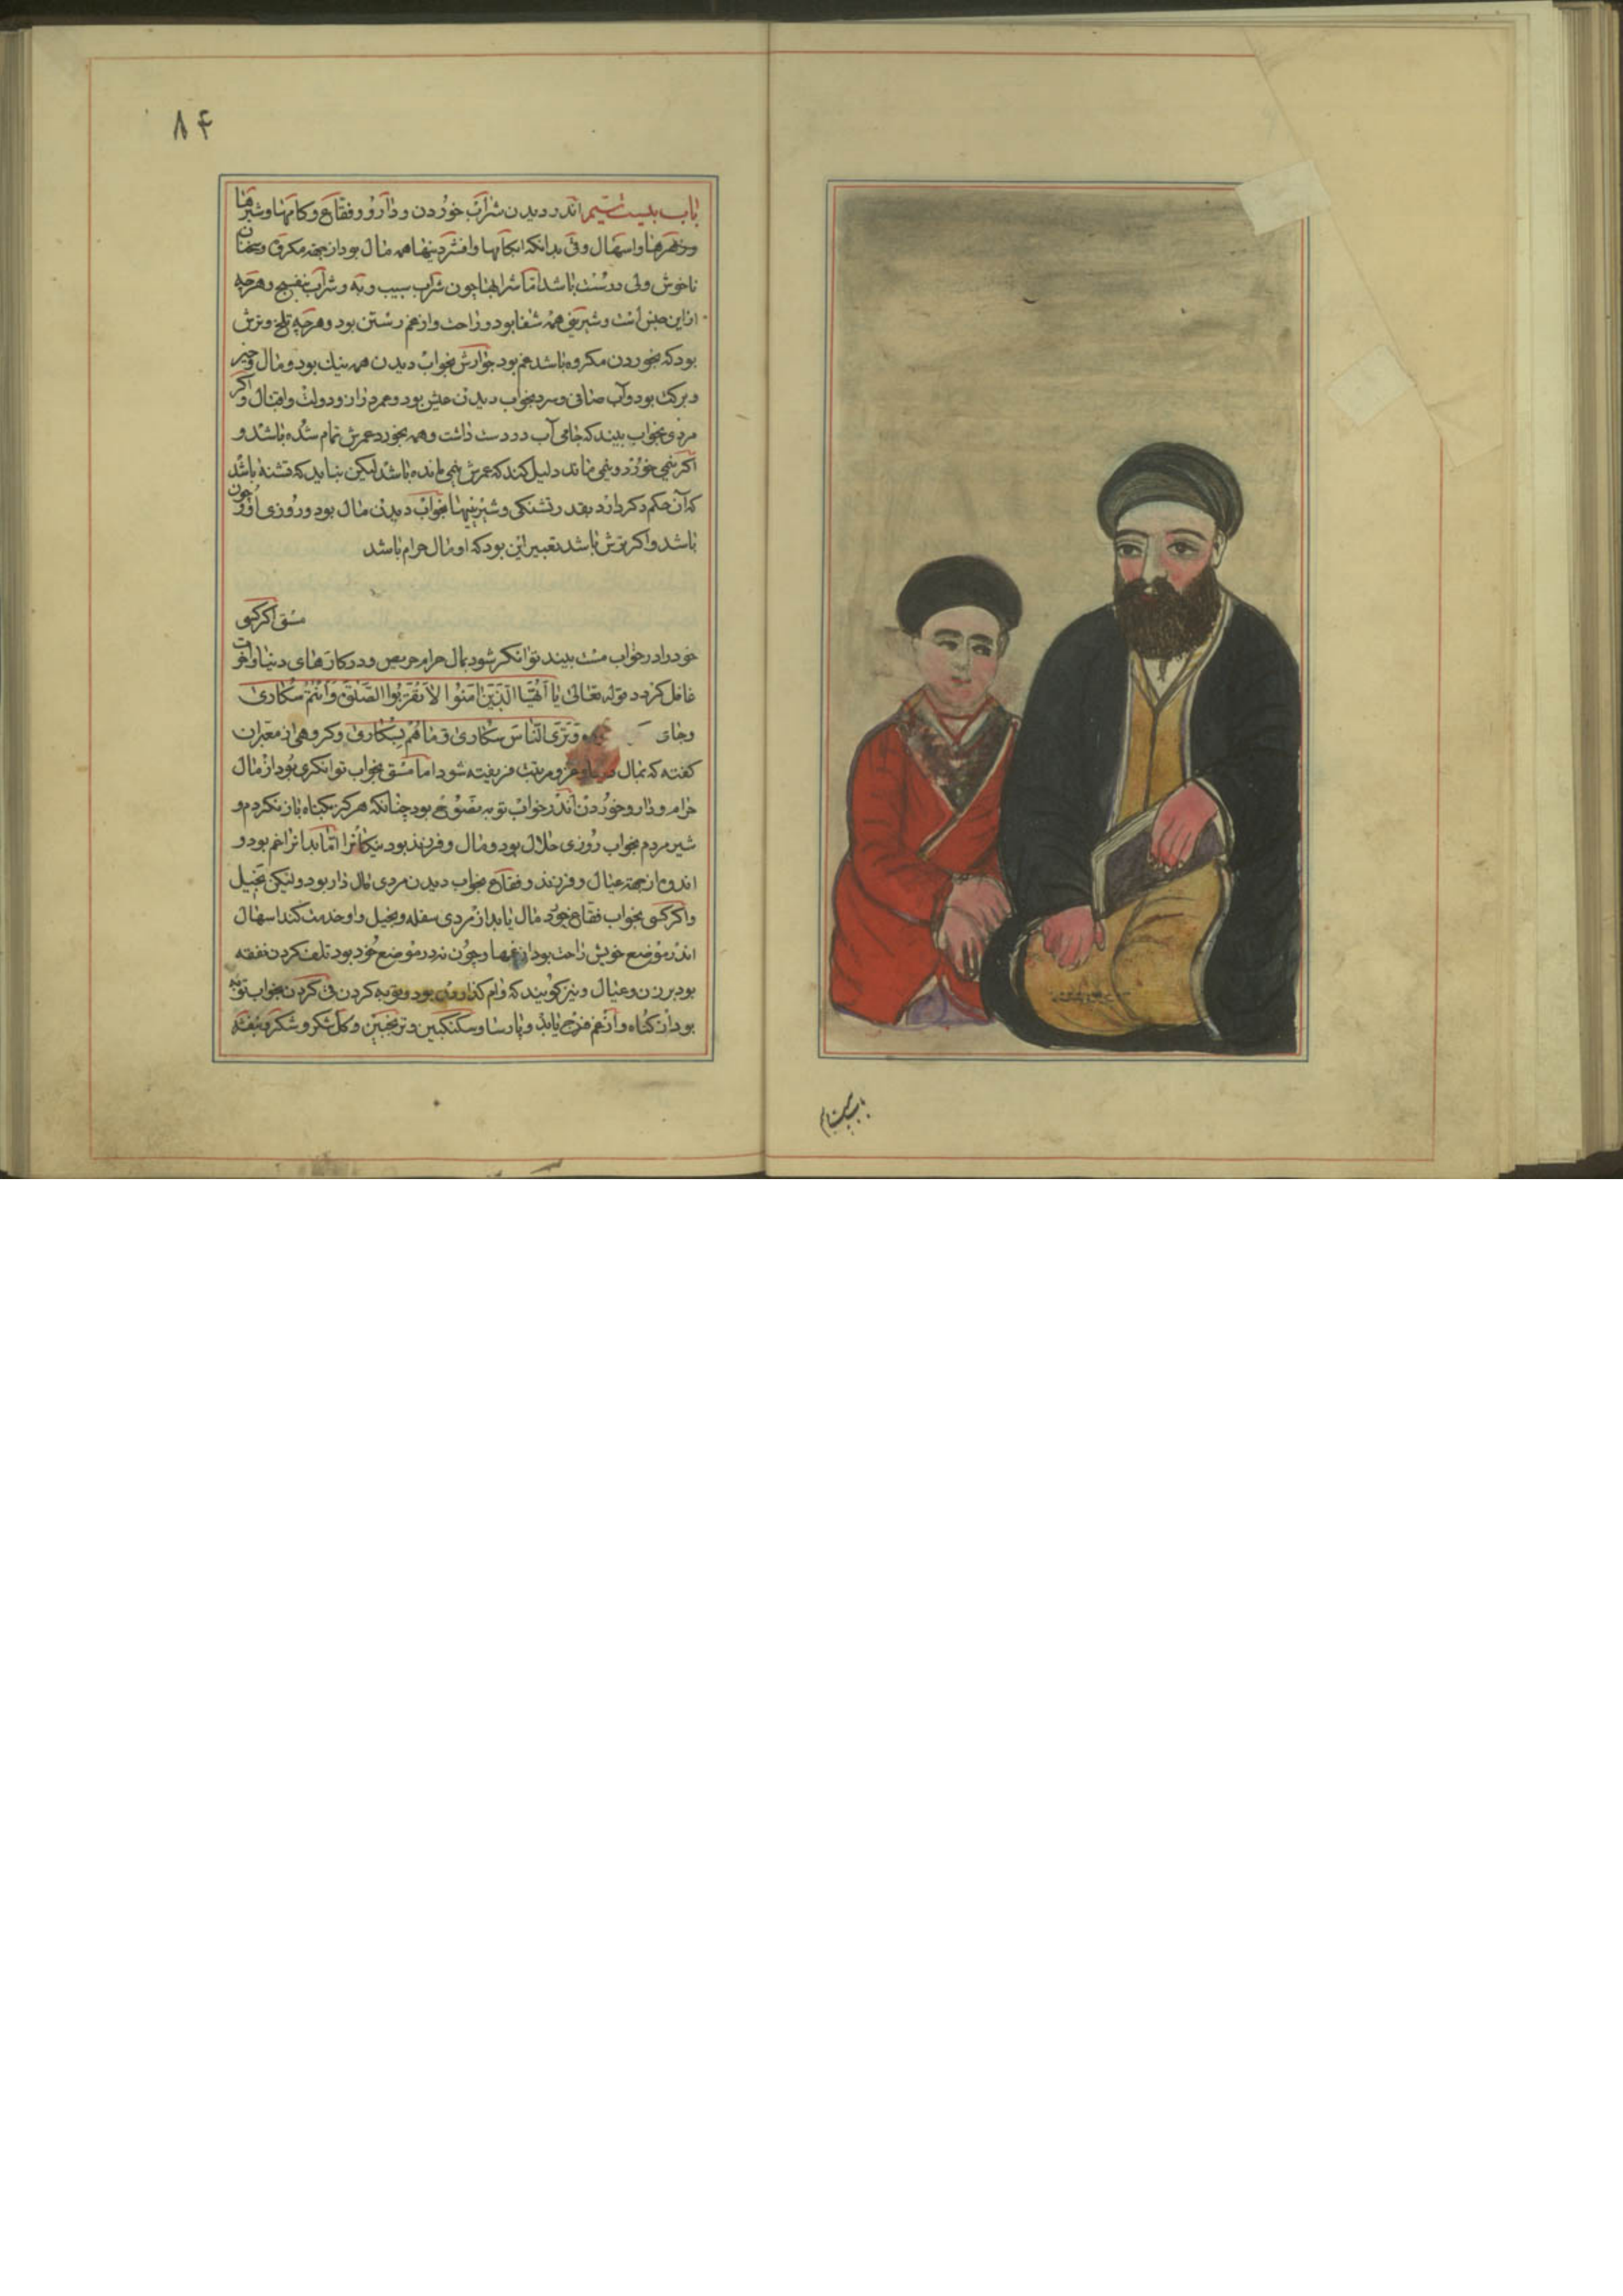 ۸۴
باب بیست نهم اندر دیدن شراب خوردن و دارو و فقاع و کامها و شیرها
و زهرها و اسهال و قی بدانکه آبکامها و افشردنیها همه مال بود از جهة مکروه و سخنان
ناخوش ولی درست باشد اما شرابها چون شراب سیب و به و شراب بنفسج و هرچه
از این جنس است و شیرینی همه شفا بود و راحت و از غم رستن بود و هرچه تلخ و ترش
بود که بخوردن مکروه باشد غم بود جوارش بخواب دیدن همه نیک بود و مال و خیر
و برکت بود و آب صافی و سرد بخواب دیدن عیش بود و عمر دراز و دولت و اقبال و اگر
مردی بخواب بیند که جامی آب در دست داشت و همه بخورد عمرش تمام شده باشد و
اکر نیمی خورد و نیمی بماند دلیل کند که عمرش نیمی مانده باشد لیکن نباید که تشنه باشد
که آن حکم دکر دارد بقدر تشنکی و شیرینیها بخواب دیدن مال بود و روزی او و چون
باشد و اکر ترش باشد تعبیر این بود که او مال حرام باشد
مستی اکر کسی
خود را در خواب مست بیند توانکر شود بمال حرام حریص و در کارهای دنیا و آخرت
غافل کردد قوله تعالی یا أیها الذین امنوا لا تقربوا الصلوة وأنتم سکاری
و جای وتری الناس سکاری وما هم بسکاری و کروهی از معبران
کفته که بمال و عز و مرتبت فریفته شود اما مستی بخواب توانکری بود از مال
حرام و دارو خوردن اندر خواب توبه نصوح بود چنانکه هرکز بکناه باز نکردم و
شیر مردم بخواب روزی حلال بود و مال و فرزند بود نیکانرا اما بدانرا غم بود و
اندوه از جهة عیال و فرزند و فقاع بخواب دیدن مردی مال دار بود ولیکن بخیل
و اکر کسی بخواب فقاع خورد مال یابد از مردی سفله و بخیل و او خدمت کند اسهال
اندر موضع خویش راحت بود از غمها و چون نه در موضع خود بود تلف کردن نفقه
بود بر زن و عیال و نیز کویند که وام کذاردن بود و توبه کردن قی کردن بخواب توبه
بود از کناه و از غم فرج یابد و پارسا و سکنکبین و ترنجبین و کل شکر و شکر و بنفشه
باب بیست نهم